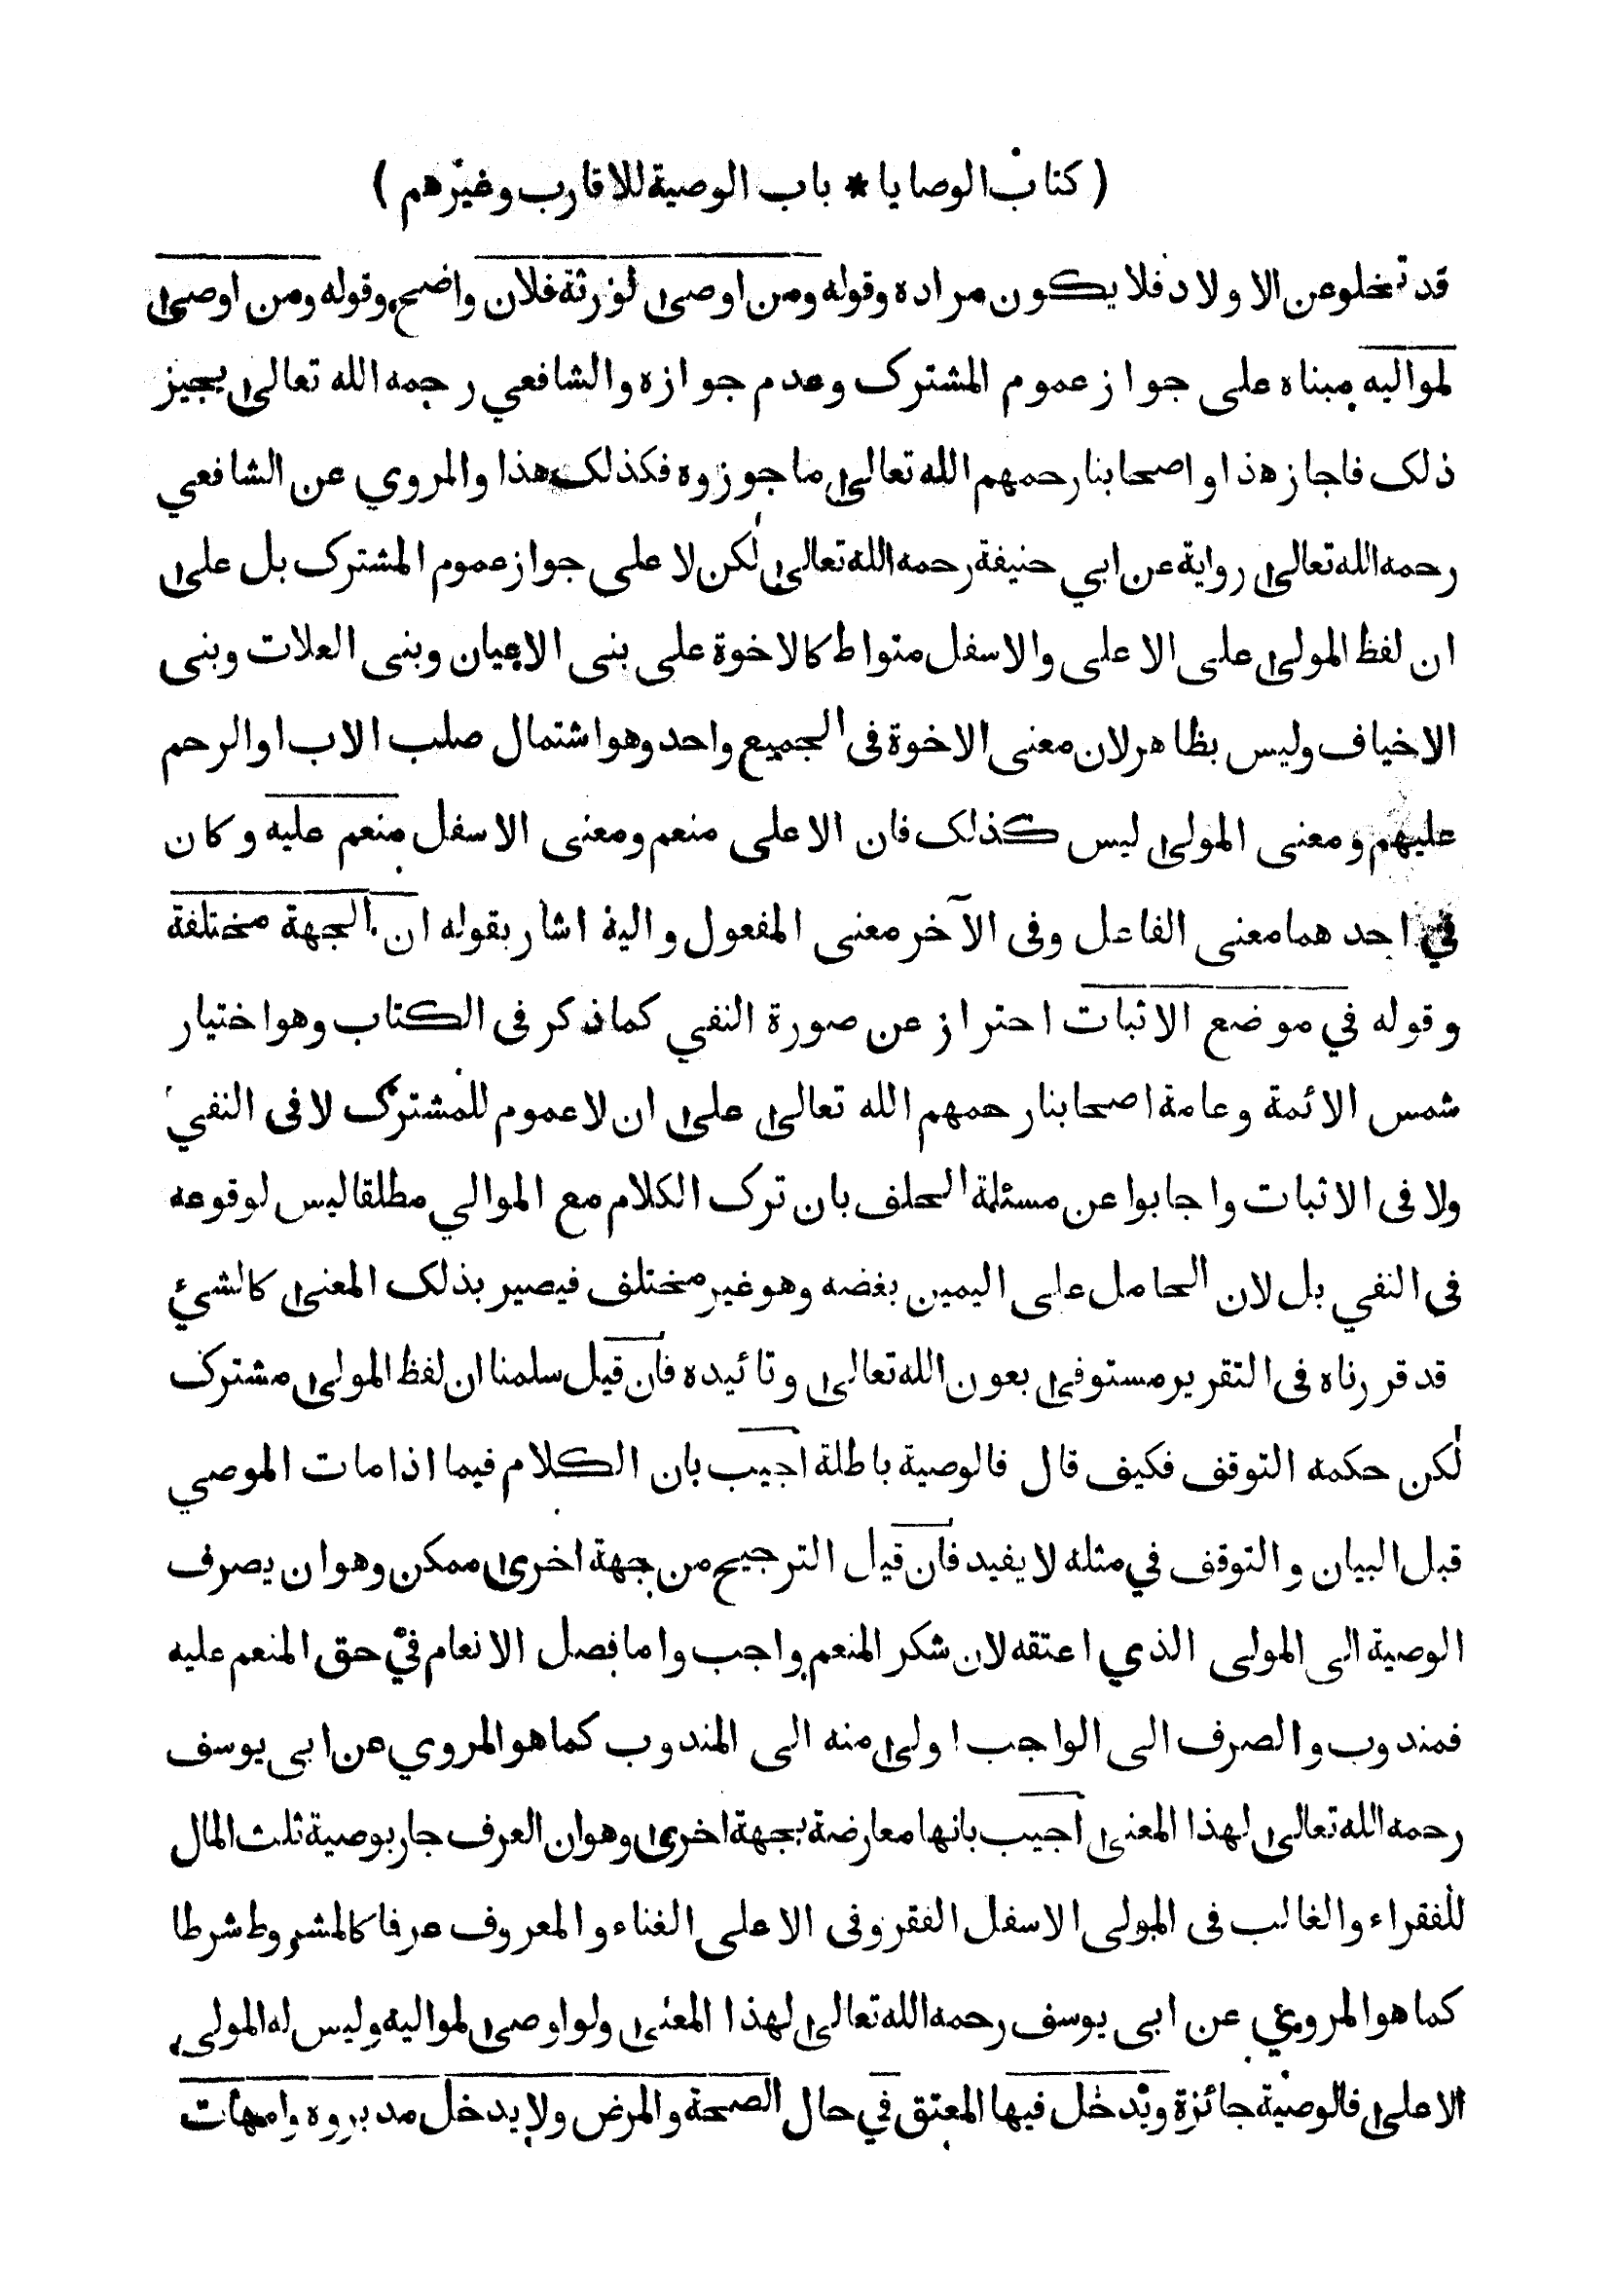 ( كتاب الوصايا * باب الوصية للاقارب وغيرهم )
قد تخلو عن الاولاد فلا يكون مراده وقوله ومن اوصى لورثة فلان واضح وقوله ومن اوصى
لمواليه مبناه على جواز عموم المشترك وعدم جوازه والشافعي رحمه الله تعالى يجيز
ذلك فاجاز هذا واصحابنا رحمهم الله تعالى ما جوزوه فكذلك هذا والمروي عن الشافعي
رحمه الله تعالى رواية عن ابي حنيفة رحمه الله تعالى لكن لا على جواز عموم المشترك بل على
ان لفظ المولى على الاعلى والاسفل متواط كالاخوة على بنى الاعيان وبنى العلات وبنى
الاخياف وليس بظاهر لان معنى الاخوة فى الجميع واحد وهو اشتمال صلب الاب او الرحم
عليهم ومعنى المولى ليس كذلك فان الاعلى منعم ومعنى الاسفل منعم عليه وكان
في احدهما معنى الفاعل وفى الآخر معنى المفعول واليه اشار بقوله ان الجهة مختلفة
وقوله في موضع الاثبات احتراز عن صورة النفي كما ذكر فى الكتاب وهو اختيار
شمس الائمة وعامة اصحابنا رحمهم الله تعالى على ان لا عموم للمشترك لا فى النفي
ولا فى الاثبات واجابوا عن مسئلة الحلف بان ترك الكلام مع الموالي مطلقا ليس لوقوعه
فى النفي بل لان الحامل على اليمين بغضه وهو غير مختلف فيصير بذلك المعنى كالشئ
قد قررناه فى التقرير مستوفى بعون الله تعالى وتائيده فان قيل سلمنا ان لفظ المولى مشترك
لكن حكمه التوقف فكيف قال فالوصية باطلة اجيب بان الكلام فيما اذا مات الموصي
قبل البيان والتوقف في مثله لا يفيد فان قيل الترجيح من جهة اخرى ممكن وهو ان يصرف
الوصية الى المولى الذي اعتقه لان شكر المنعم واجب واما فصل الانعام في حق المنعم عليه
فمندوب والصرف الى الواجب اولى منه الى المندوب كما هو المروي عن ابى يوسف
رحمه الله تعالى لهذا المعنى اجيب بانها معارضة بجهة اخرى وهو ان العرف جار بوصية ثلث المال
للفقراء والغالب فى المولى الاسفل الفقر وفى الاعلى الغناء والمعروف عرفا كالمشروط شرطا
كما هو المروي عن ابى يوسف رحمه الله تعالى لهذا المعنى ولو اوصى لمواليه وليس له المولى
الاعلى فالوصية جائزة ويدخل فيها المعتق في حال الصحة والمرض ولا يدخل مدبروه وامهات